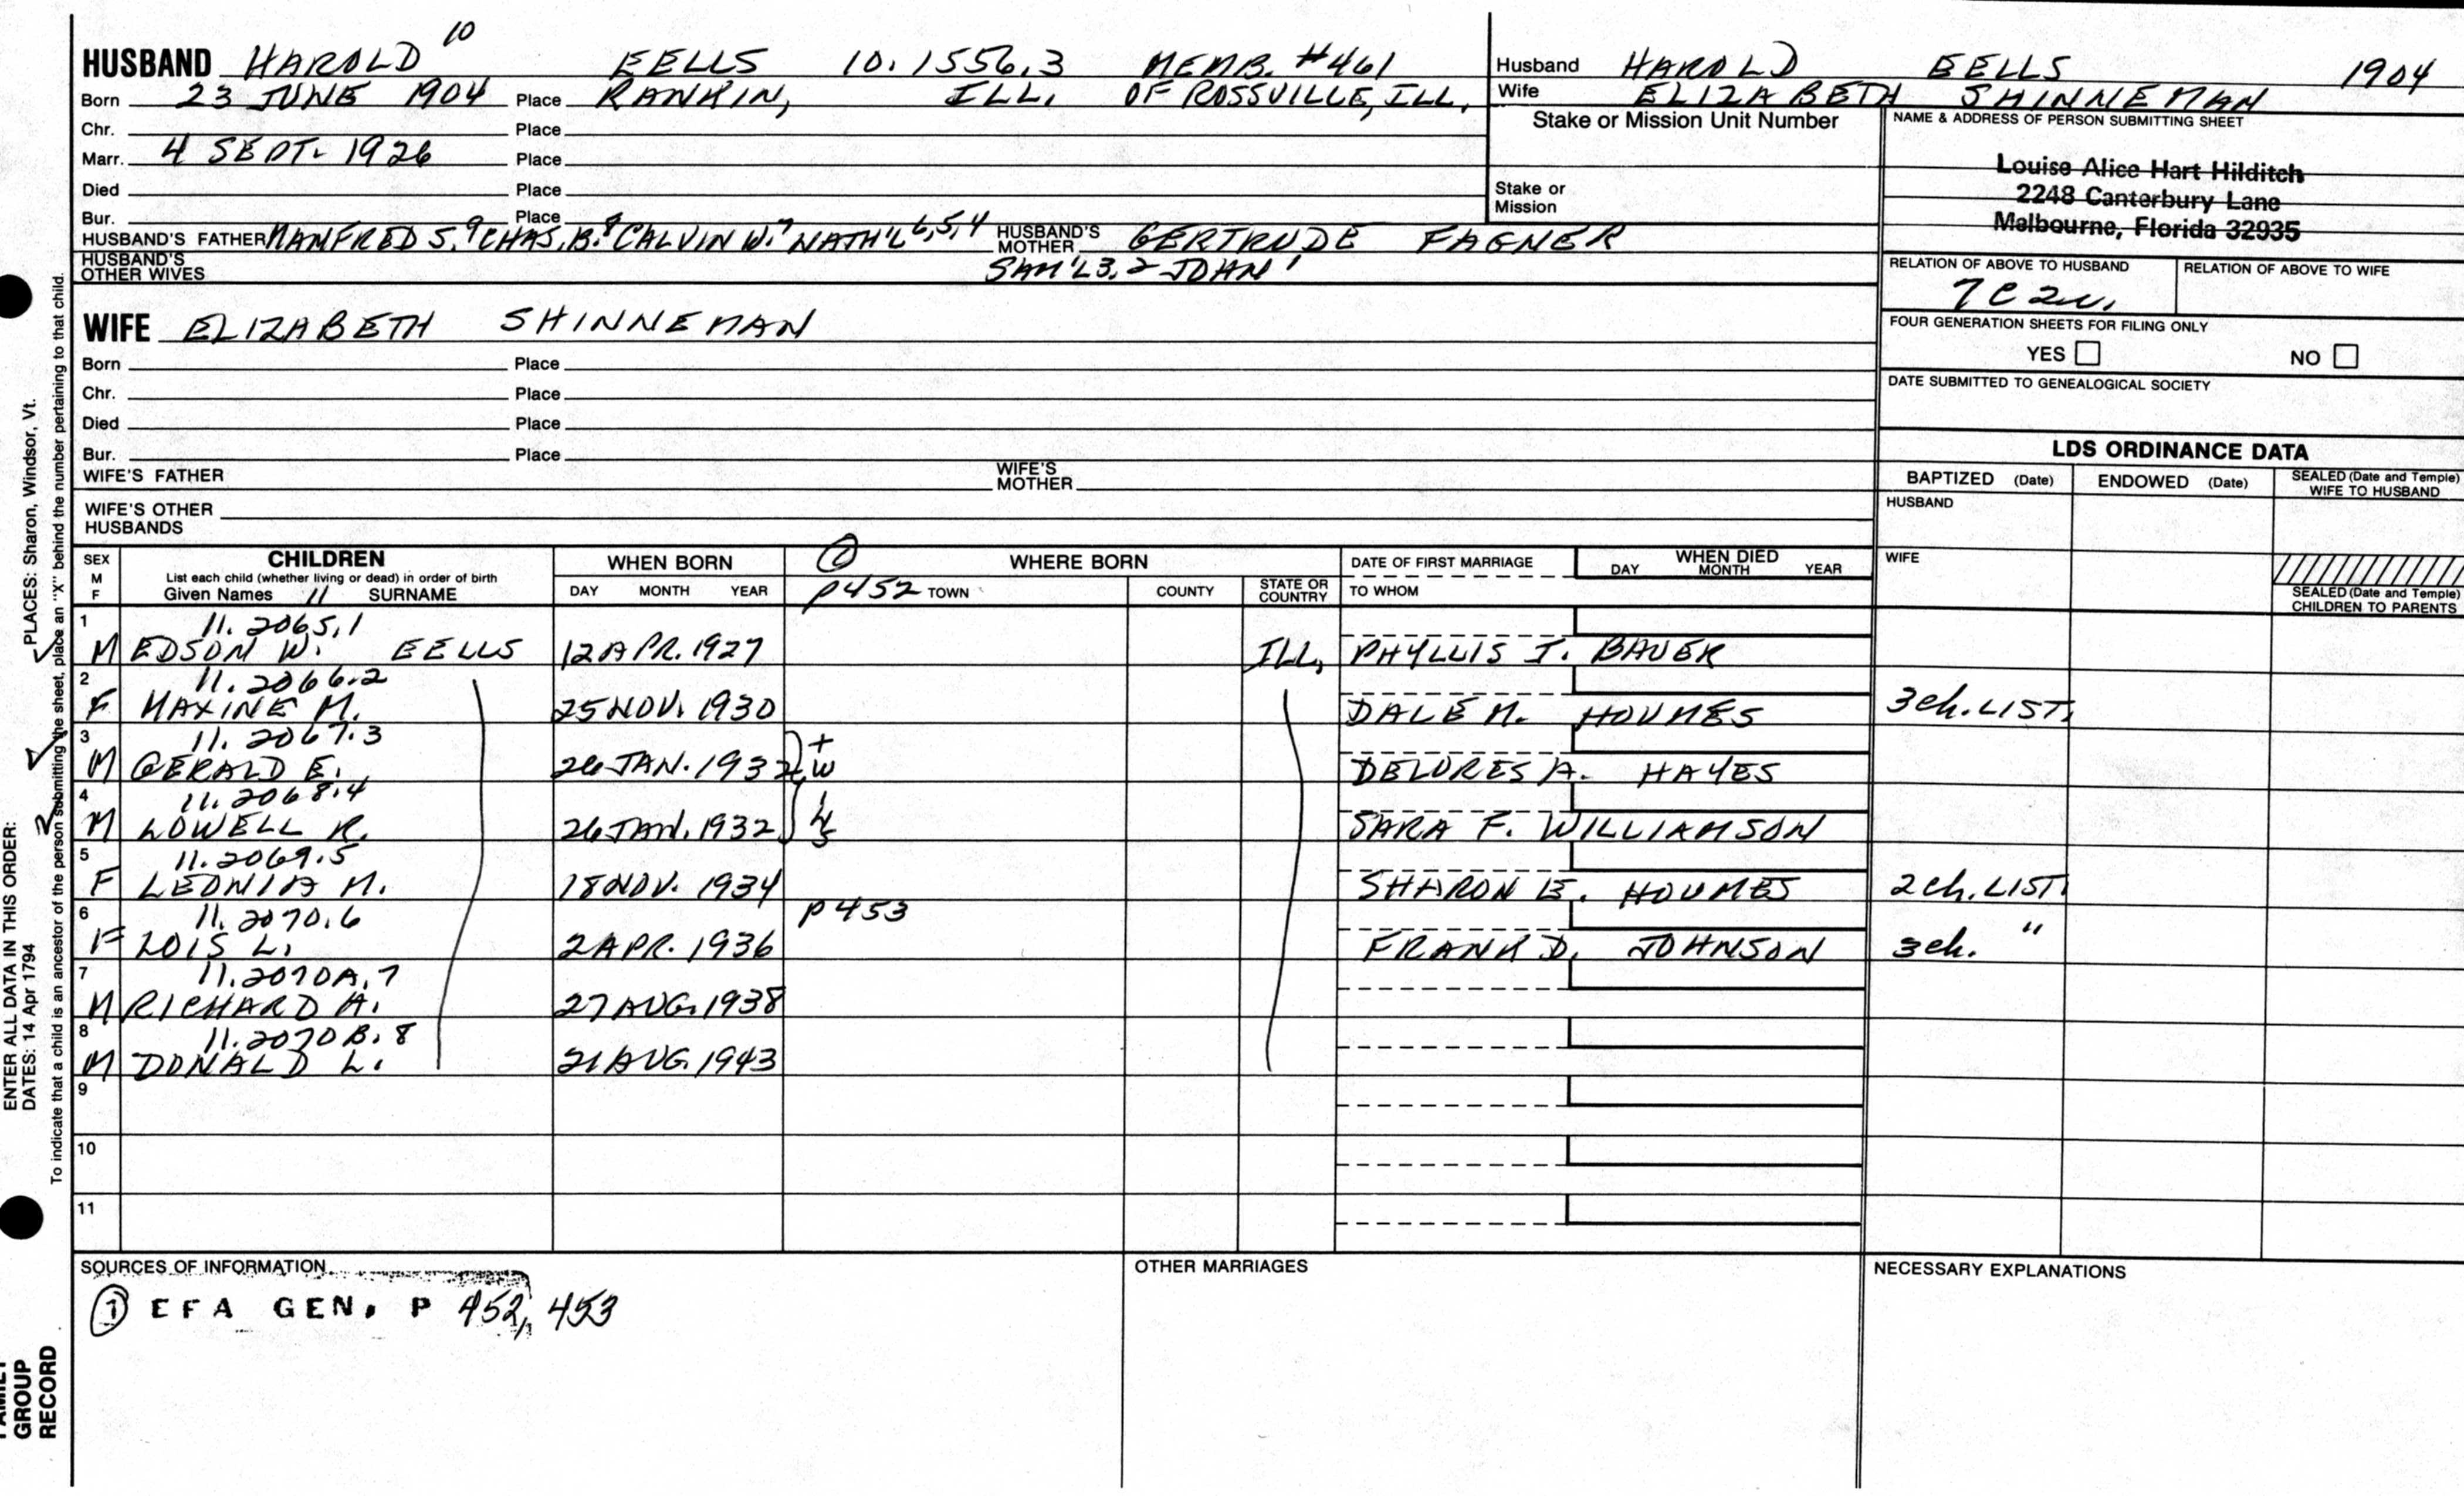 HUSBAND HAROLD 10 EELLS 10.1556.3 MEMB. #461
Born 23 JUNE 1904 Place RANKIN, ILL. OF ROSSVILLE, ILL.
Chr. Place
Marr. 4 SEPT. 1926 Place
Died Place
Bur. Place
HUSBAND'S FATHER MANFRED S.9 CHAS. B.8 CALVIN W.7 NATH'L 6,5,4 HUSBAND'S MOTHER GERTRUDE FAGNER
HUSBAND'S OTHER WIVES SAM'L 3,2 JOHN 1
Husband HAROLD EELLS 1904
Wife ELIZABETH SHINNEMAN
Stake or Mission Unit Number
Stake or Mission
NAME & ADDRESS OF PERSON SUBMITTING SHEET
Louise Alice Hart Hilditch
2248 Canterbury Lane
Melbourne, Florida 32935
RELATION OF ABOVE TO HUSBAND RELATION OF ABOVE TO WIFE
7C 2
FOUR GENERATION SHEETS FOR FILING ONLY
YES NO
DATE SUBMITTED TO GENEALOGICAL SOCIETY
WIFE ELIZABETH SHINNEMAN
Born Place
Chr. Place
Died Place
Bur. Place
WIFE'S FATHER WIFE'S MOTHER
WIFE'S OTHER HUSBANDS
LDS ORDINANCE DATA
BAPTIZED (Date) ENDOWED (Date) SEALED (Date and Temple) WIFE TO HUSBAND
HUSBAND
WIFE
SEALED (Date and Temple) CHILDREN TO PARENTS
SEX M F
CHILDREN
List each child (whether living or dead) in order of birth
Given Names 11 SURNAME
WHEN BORN
DAY MONTH YEAR
① WHERE BORN
p452 TOWN COUNTY STATE OR COUNTRY
DATE OF FIRST MARRIAGE
TO WHOM
WHEN DIED
DAY MONTH YEAR
1 11.2065.1
M EDSON W. EELLS 12 APR. 1927 ILL. PHYLLIS J. BAUER
2 11.2066.2
F MAXINE M. 25 NOV. 1930 DALE M. HOUMES 3ch. LIST.
3 11.2067.3
M GERALD E. 26 JAN. 1932 DELORES A. HAYES
4 11.2068.4
M LOWELL R. 26 JAN. 1932 SARA F. WILLIAMSON
5 11.2069.5
F LEONIA M. 18 NOV. 1934 SHARON E. HOUMES 2ch. LIST.
6 11.2070.6 p453
F LOIS L. 2 APR. 1936 FRANK D. JOHNSON 3ch. "
7 11.2070A.7
M RICHARD A. 27 AUG. 1938
8 11.2070B.8
M DONALD L. 21 AUG. 1943
9
10
11
SOURCES OF INFORMATION
① EFA GEN. P 452, 453
OTHER MARRIAGES
NECESSARY EXPLANATIONS
ENTER ALL DATA IN THIS ORDER:
DATES: 14 Apr 1794
PLACES: Sharon, Windsor, Vt.
To indicate that a child is an ancestor of the person submitting the sheet, place an "X" behind the number pertaining to that child.
FAMILY
GROUP
RECORD